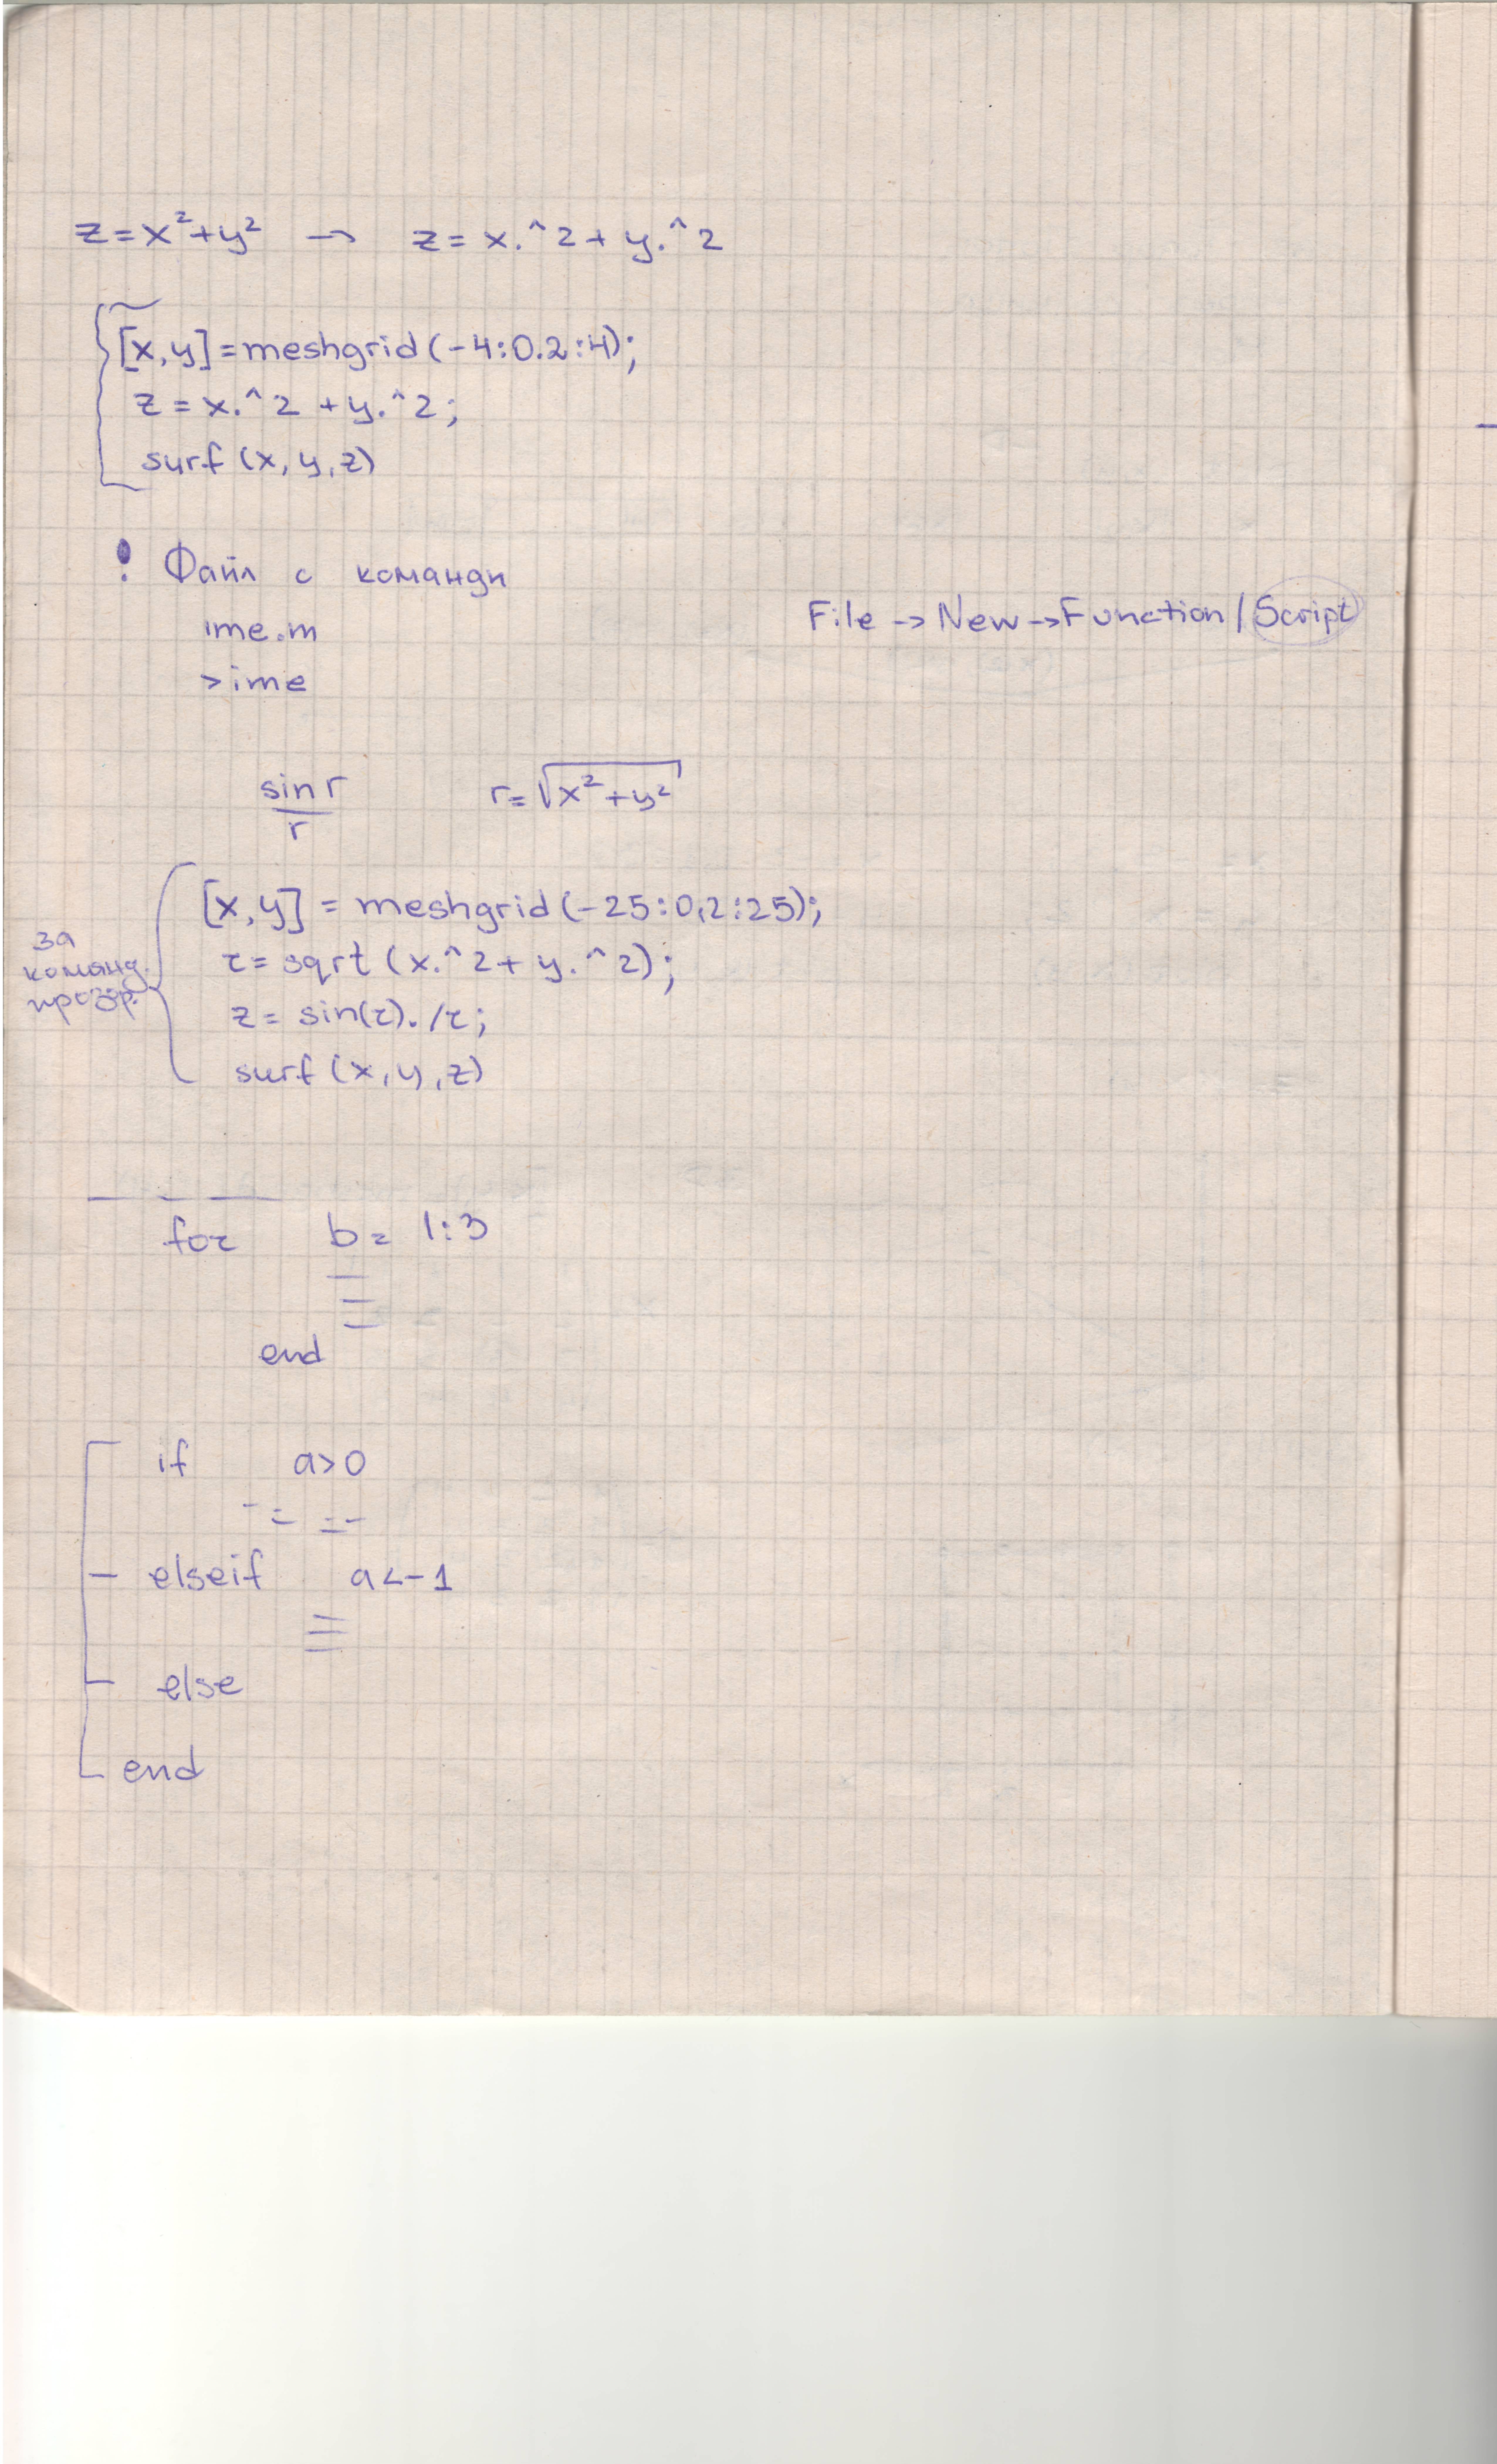 z=x²+y² → z=x.^2+y.^2
[x,y]=meshgrid(-4:0.2:4);
z=x.^2+y.^2;
surf(x,y,z)
! Файл с команди
ime.m
File->New->Function/Script
>ime
sin r
r
r=√x²+y²
за
команд.
прозор.
[x,y]=meshgrid(-25:0,2:25);
r=sqrt(x.^2+y.^2);
z=sin(r)./r;
surf(x,y,z)
for b=1:3
end
if a>0
elseif a<-1
else
end